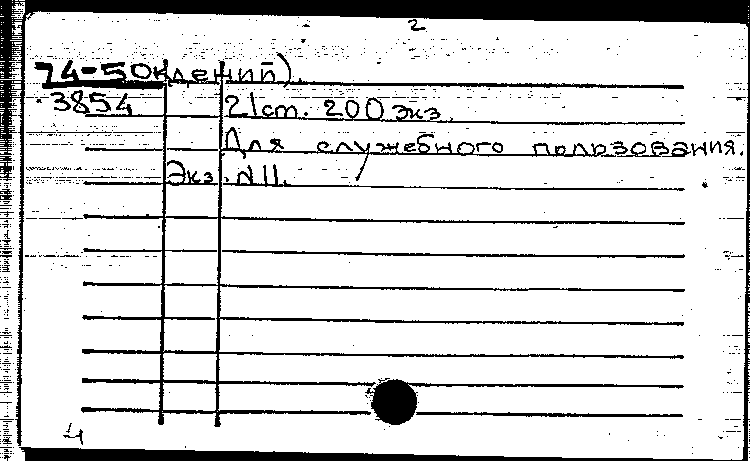 2
74-5 ождений).
3854 21 ст. 200 экз.
Для служебного пользования.
Экз. N 11.
4